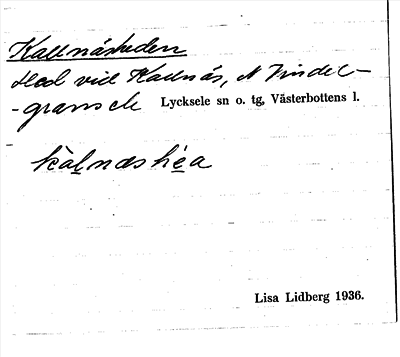 Kallnäsheden
Hed vid Kallnäs, N Vindel-
-gransele Lycksele sn o. tg, Västerbottens l.
kàlnæshéa
Lisa Lidberg 1936.